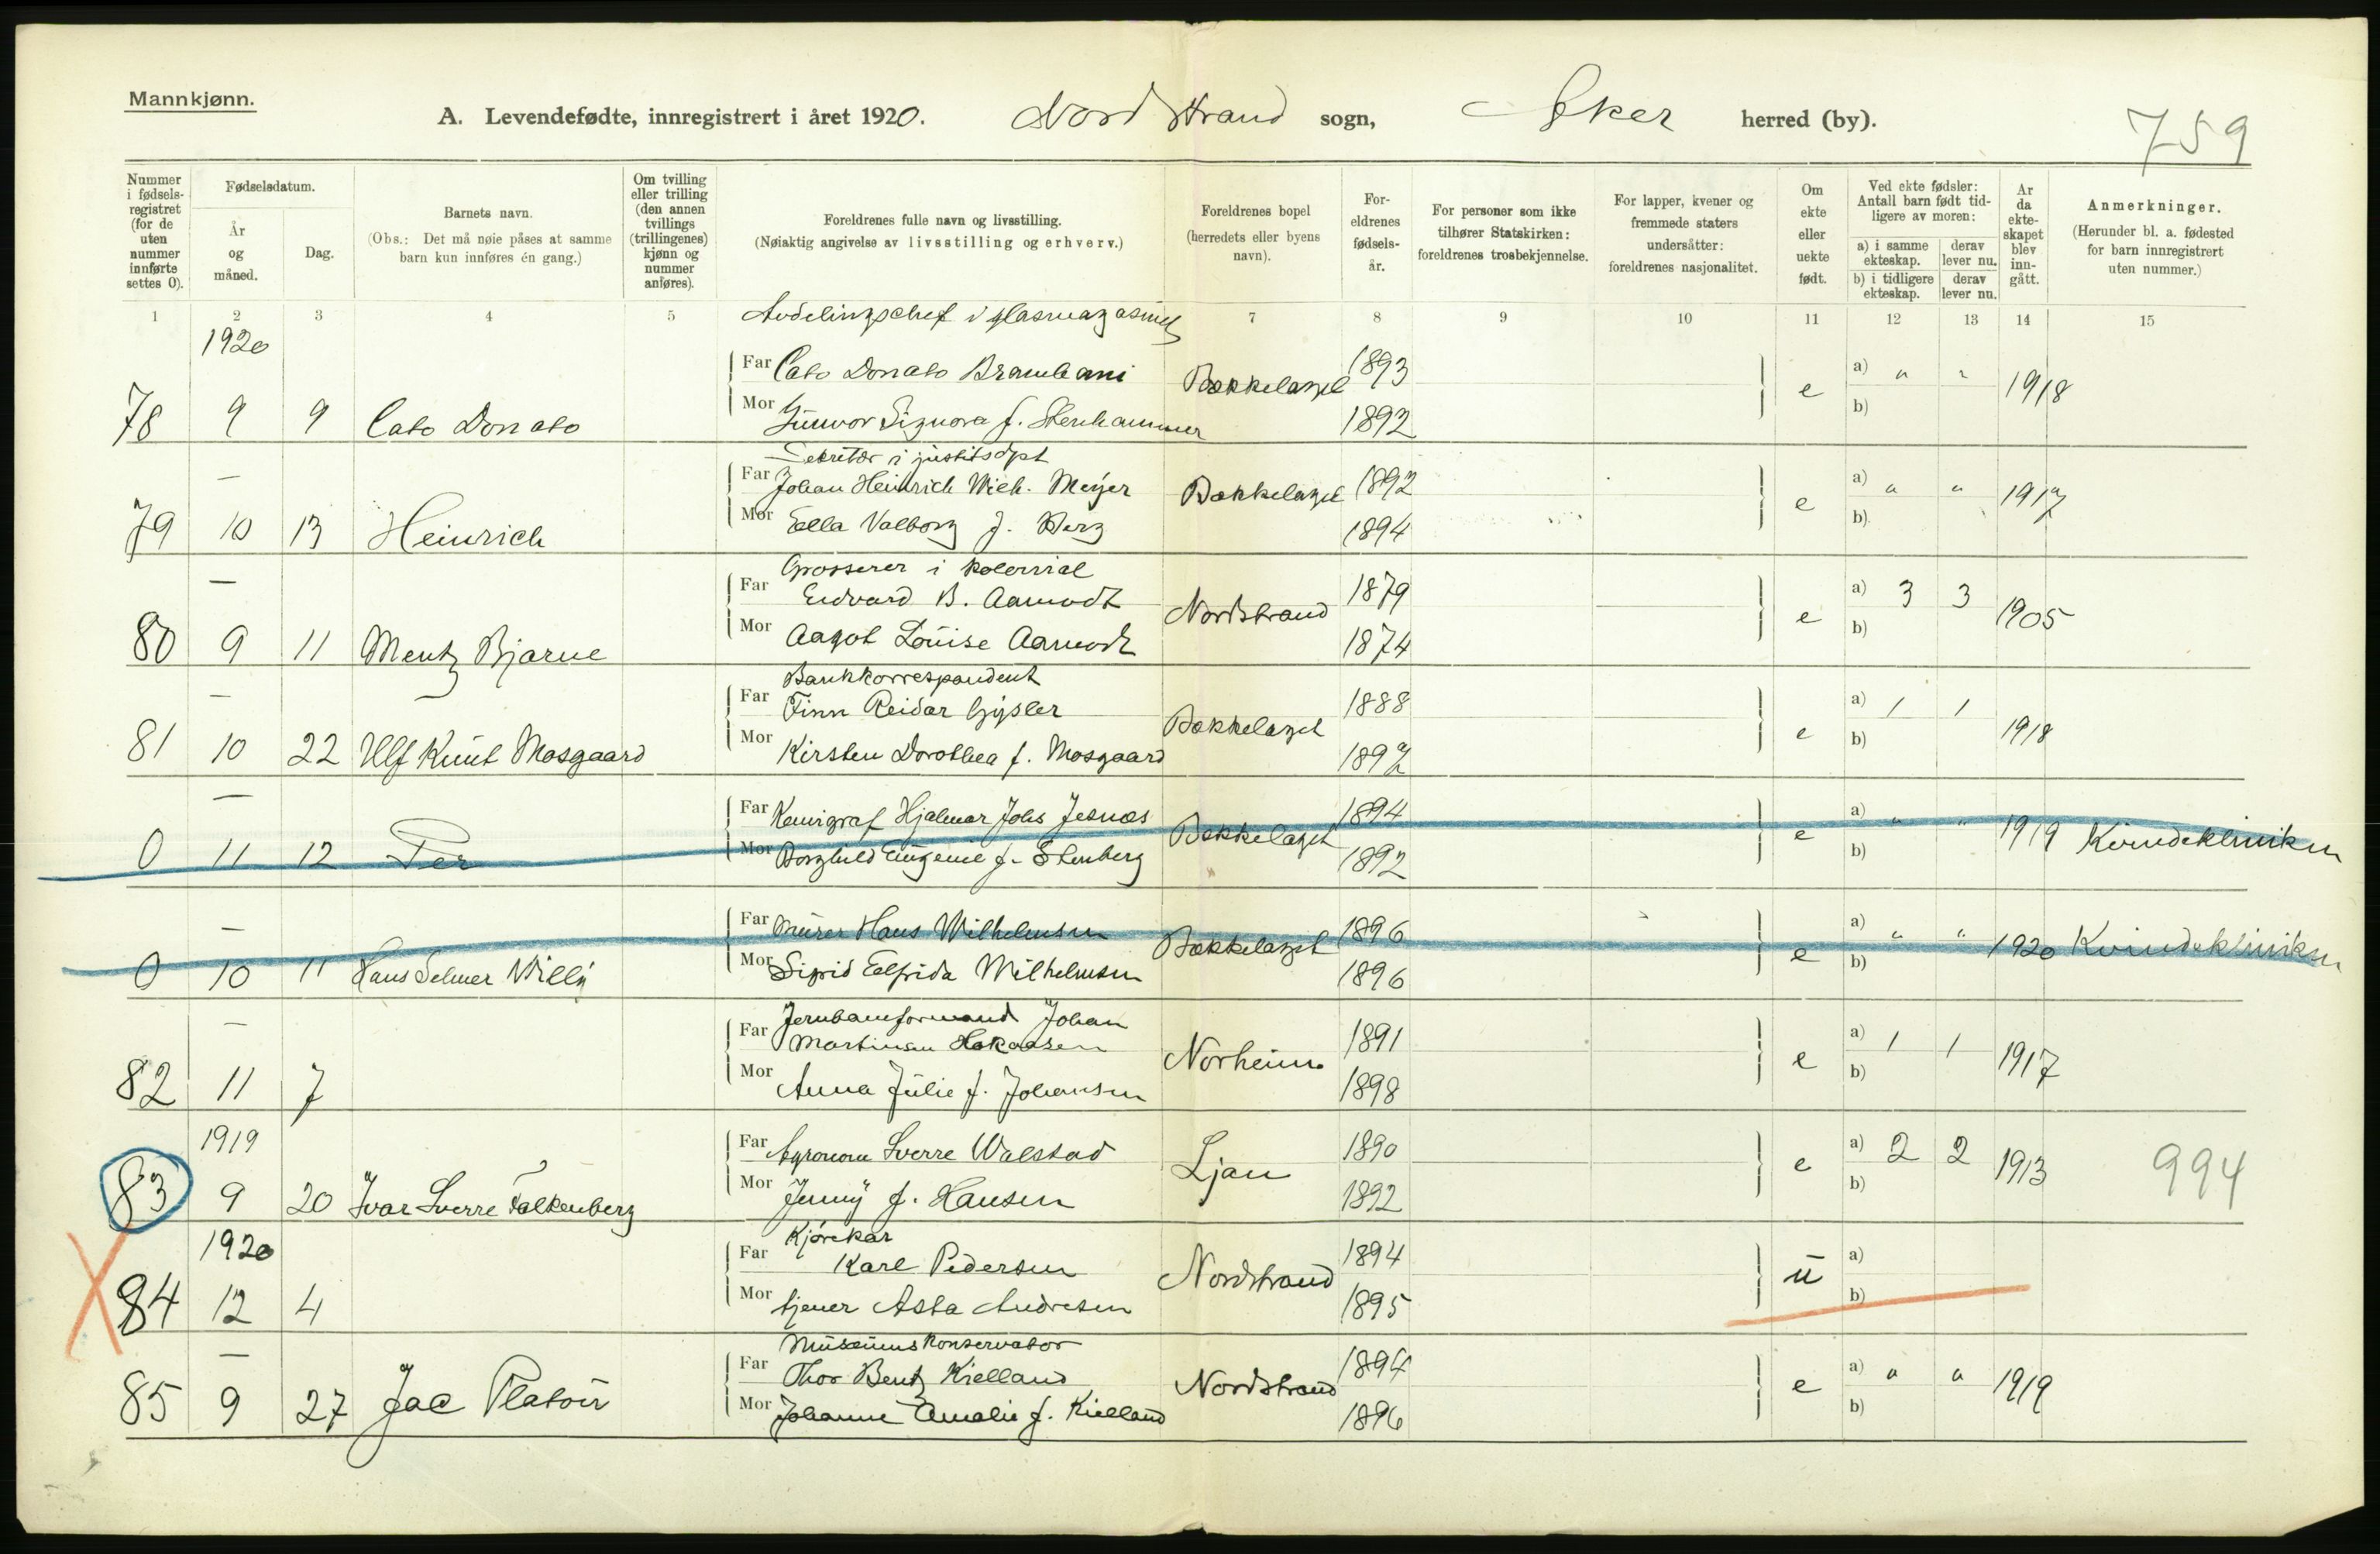 Mannkjønn.
A. Levendefødte, innregistrert i året 1920. Nordstrand sogn, Aker herred (by).
759
Nummer i fødsels-registret (for de uten nummer innførte settes 0).
Fødselsdatum.
År og måned.
Dag.
Barnets navn.
(Obs.: Det må nøie påses at samme barn kun innføres én gang.)
Om tvilling eller trilling (den annen tvillings (trillingenes) kjønn og nummer anføres).
Foreldrenes fulle navn og livsstilling.
(Nøiaktig angivelse av livsstilling og erhverv.)
Foreldrenes bopel (herredets eller byens navn).
For-eldrenes fødsels-år.
For personer som ikke tilhører Statskirken: foreldrenes trosbekjennelse.
For lapper, kvener og fremmede staters undersåtter: foreldrenes nasjonalitet.
Om ekte eller uekte født.
Ved ekte fødsler: Antall barn født tid-ligere av moren:
a) i samme ekteskap. derav lever nu.
b) i tidligere ekteskap. derav lever nu.
År da ekte-skapet blev inn-gått.
Anmerkninger.
(Herunder bl. a. fødested for barn innregistrert uten nummer.)
1 2 3 4 5 7 8 9 10 11 12 13 14 15
1920
Avdelingschef i glasmagasinet
Far Cato Donato Brambani Bækkelaget 1893 e a) " " 1918
78 9 9 Cato Donato
Mor Gunvor Signora f. Stenhammer 1892 b)
— Sekretær i justitsdpt
Far Johan Heinrich Wich. Meyer Bækkelaget 1892 e a) " " 1917
79 10 13 Heinrich
Mor Ella Valborg f. Berg 1894 b)
— Grosserer i kolonial
Far Edvard B. Aamodt Nordstrand 1879 e a) 3 3 1905
80 9 11 Mentz Bjarne
Mor Aagot Louise Aamodt 1874 b)
— Bankkorrespondent
Far Finn Reidar Gysler Bækkelaget 1888 e a) 1 1 1918
81 10 22 Ulf Knut Mosgaard
Mor Kirsten Dorothea f. Mosgaard 1897 b)
— Far Kemigraf Hjalmar Johs Jesnæs Bækkelaget 1894 e a) " " 1919 Kvindekliniken
0 11 12 Per
Mor Borghild Eugenie f. Stenberg 1892 b)
— Far Murer Hans Wilhelmsen Bækkelaget 1896 e a) " " 1920 Kvindekliniken
0 10 11 Hans Selmer Willy
Mor Sigrid Elfrida Wilhelmsen 1896 b)
— Far Jernbaneformand Johan
Martinsen Hokaasen Norheim 1891 e a) 1 1 1917
82 11 7
Mor Anna Julie f. Johansen 1898 b)
1919 Far Agronom Sverre Walstad Ljan 1890 e a) 2 2 1913 994
83 9 20 Ivar Sverre Falkenberg
Mor Jenny f. Hansen 1892 b)
1920 Kjørekar
Far Karl Pedersen Nordstrand 1894 u a)
84 12 4
Mor tjener Asta Andresen 1895 b)
— Museumskonservator
Far Thor Bentz Kielland Nordstrand 1894 e a) " " 1919
85 9 27 Jac Platou
Mor Johanne Amalie f. Kielland 1896 b)